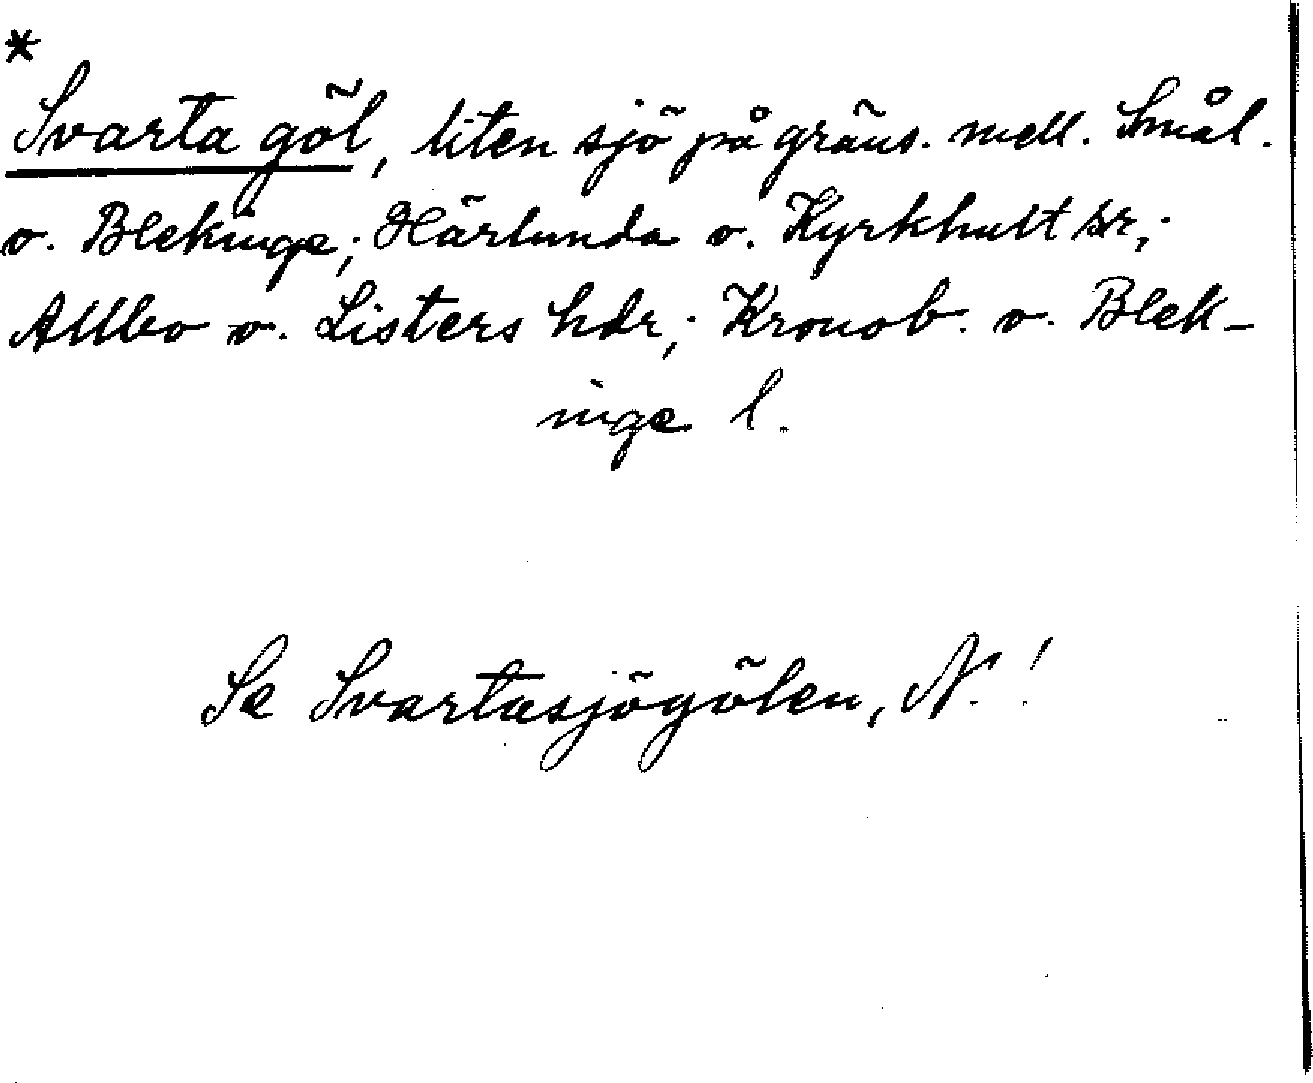 *
Svarta göl, liten sjö på gräns. mell. Smål.
o. Blekinge; Härlunda o. Kyrkhult sr;
Allbo o. Listers hdr; Kronob. o. Blek-
inge l.
Se Svartasjögölen, N.!